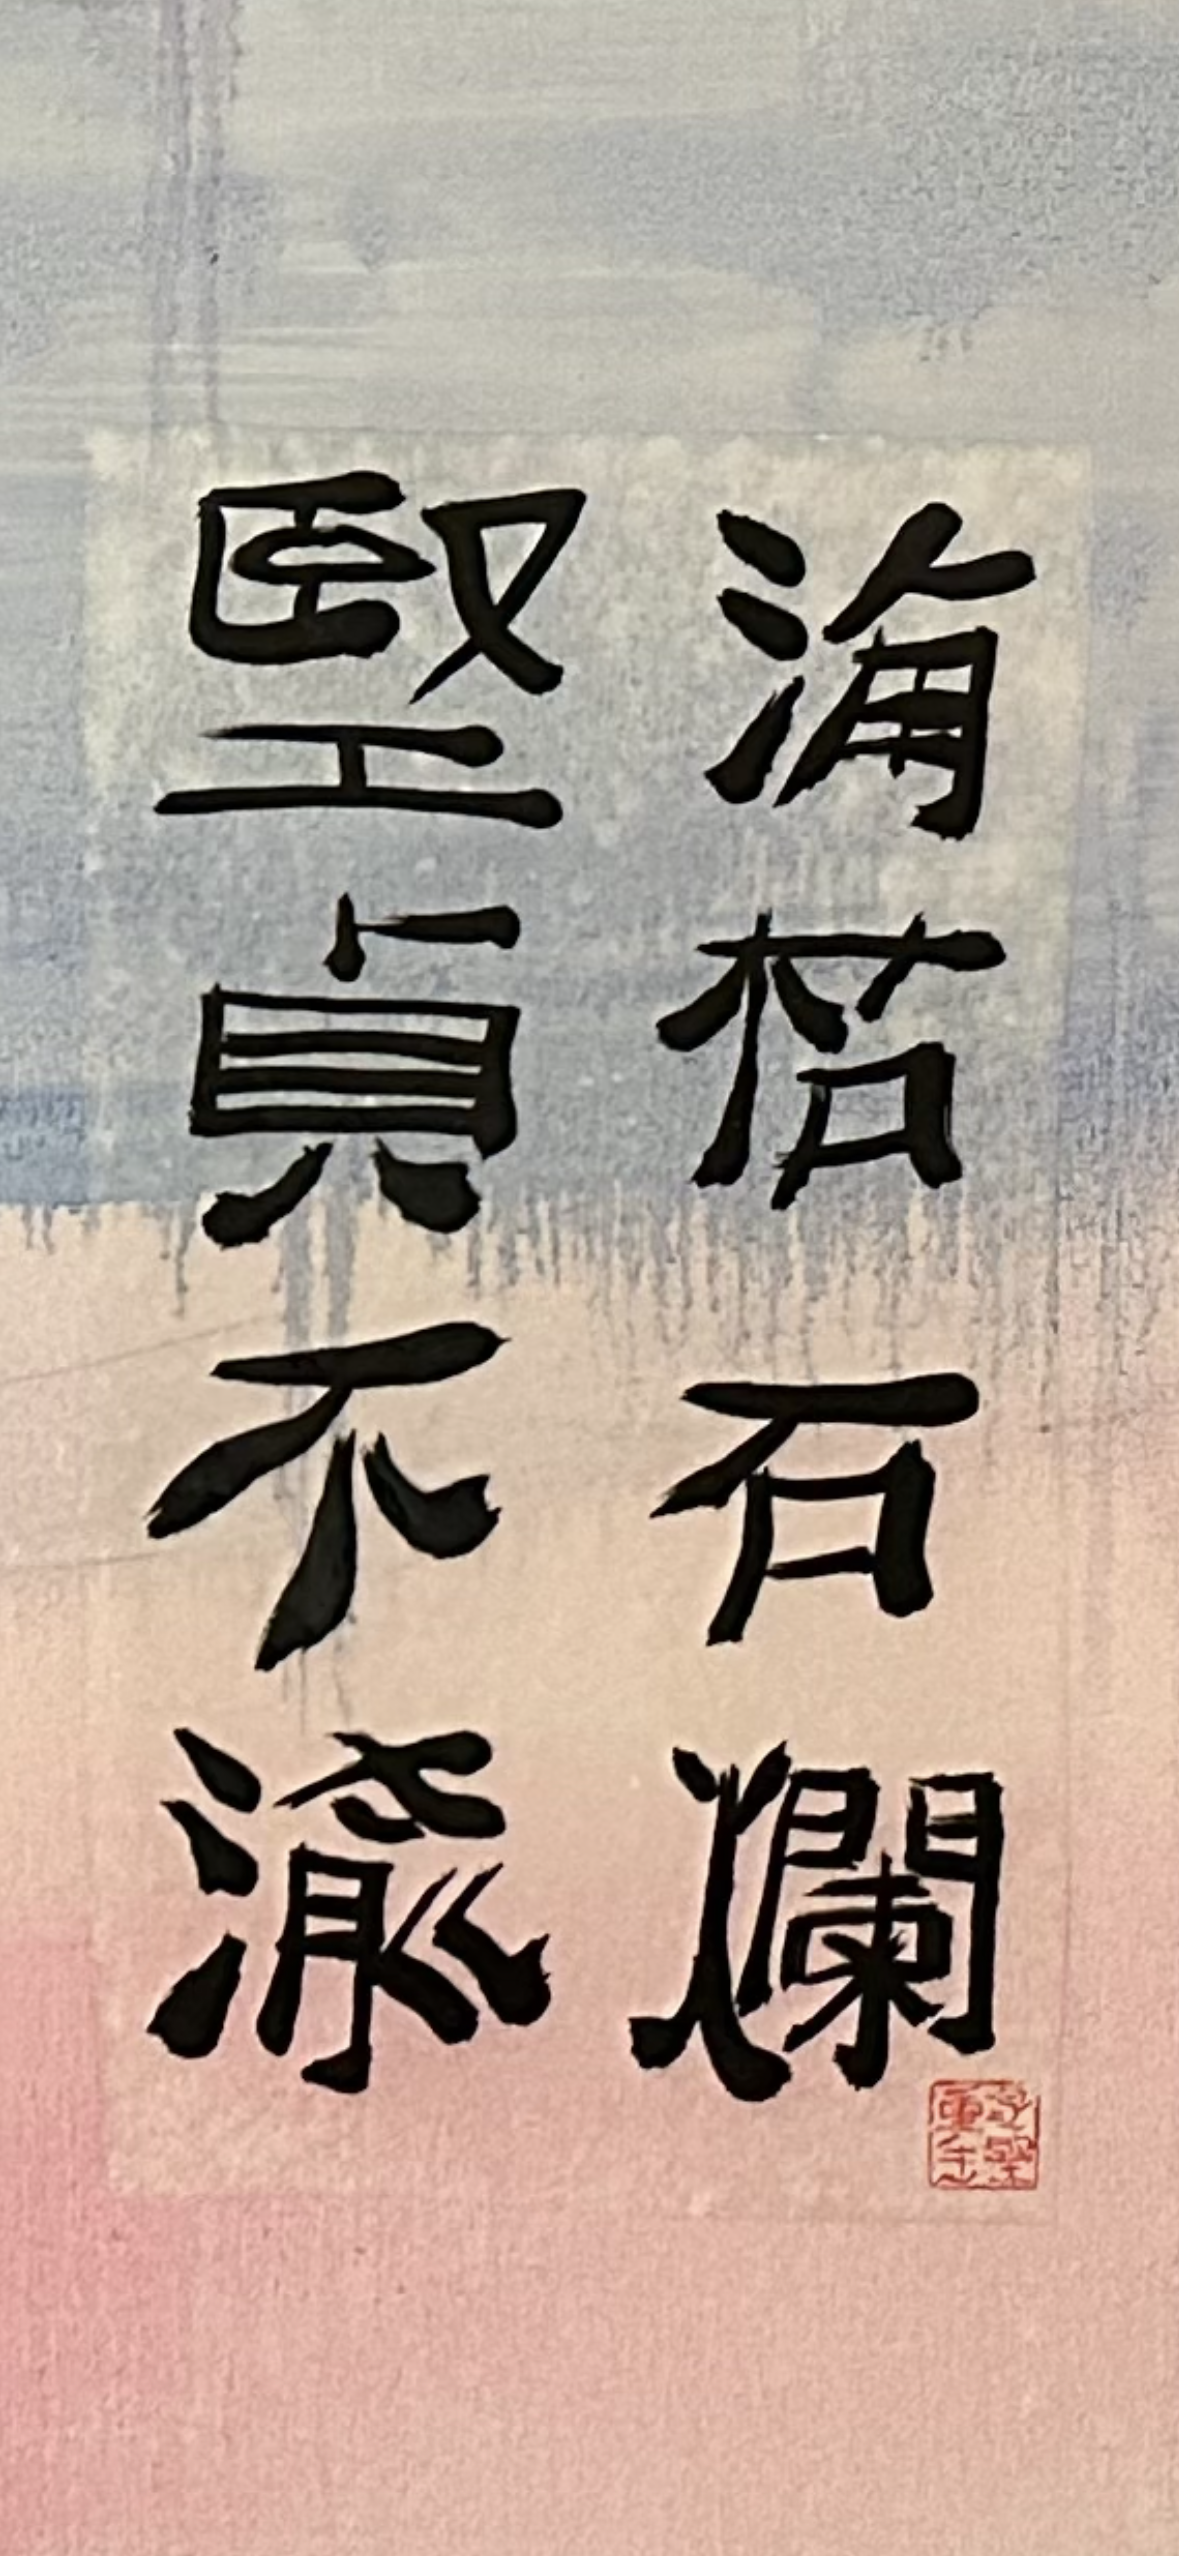 海枯石爛
堅貞不渝